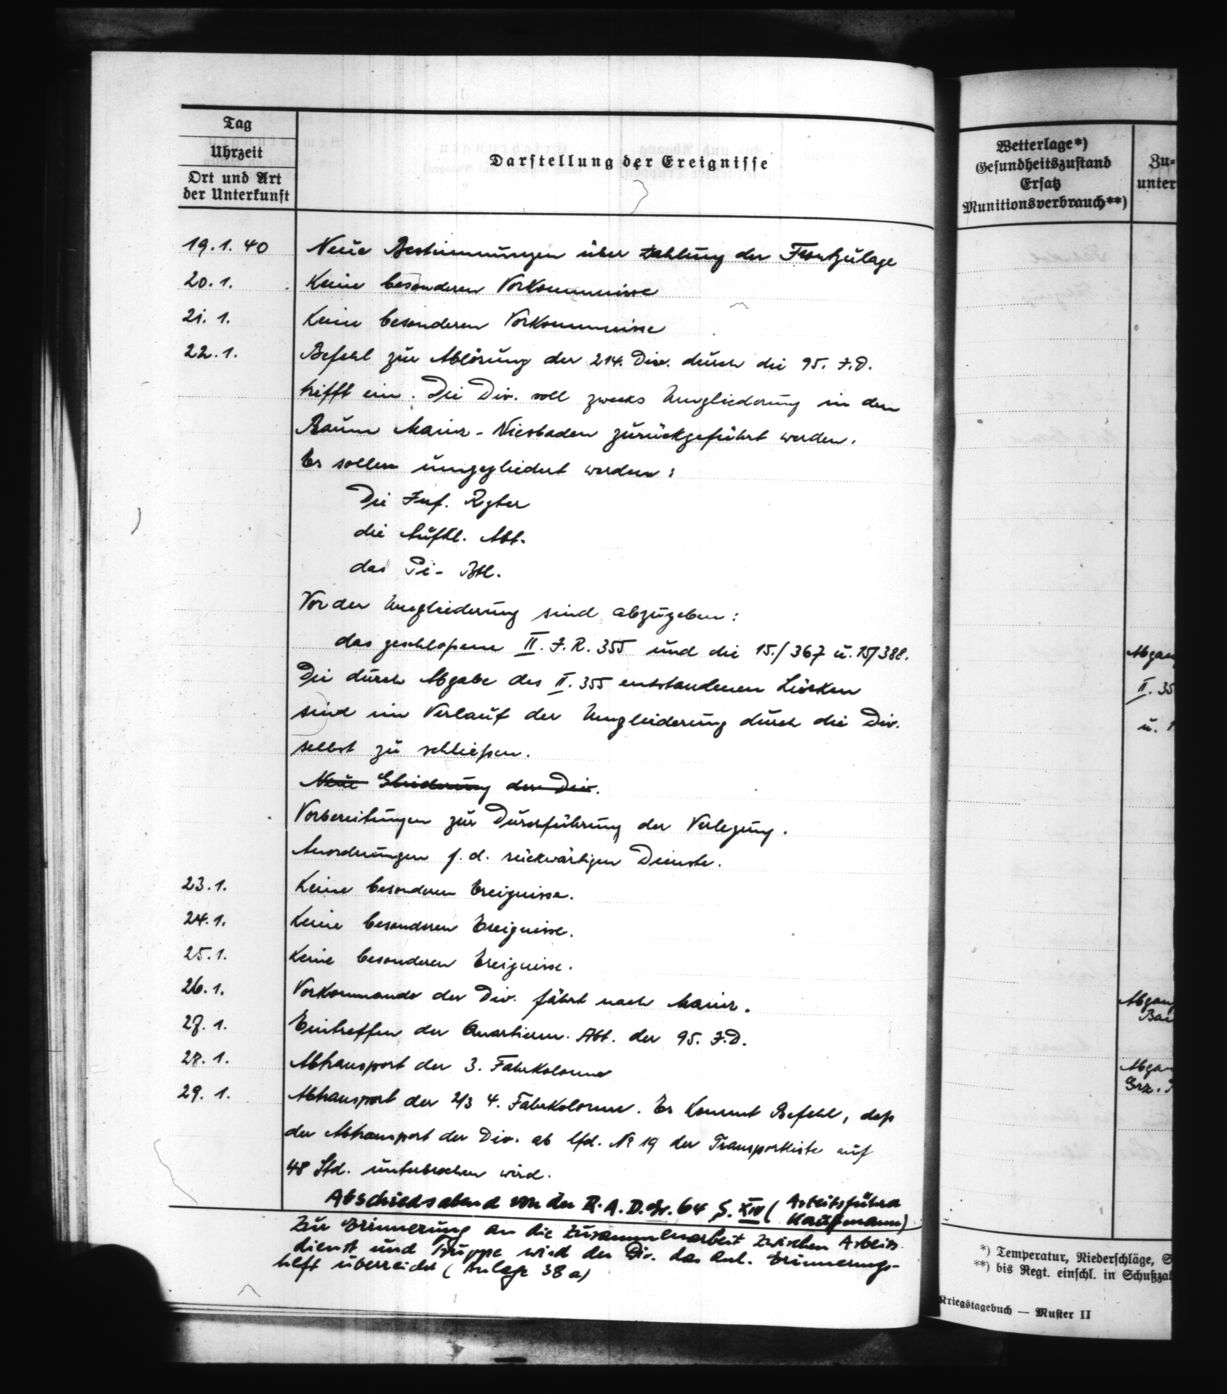 Tag
Uhrzeit
Ort und Art
der Unterkunft
Darstellung der Ereignisse
19.1.40 Neue Bestimmungen über Zahlung der Frontzulage
20.1. Keine besonderen Vorkommnisse
21.1. Keine besonderen Vorkommnisse
22.1. Befehl zur Ablösung der 214. Div. durch die 95. I.D.
trifft ein. Die Div. soll zwecks Umgliederung in den
Raum Mainz - Wiesbaden zurückgeführt werden.
Es sollen umgegliedert werden:
Die Inf. Rgter
die Aufkl. Abt.
das Pi- Btl.
Vor der Umgliederung sind abzugeben:
das geschlossene II. I.R. 355 und die 15./367 u. 15/388.
Die durch Abgabe des II. 355 entstandenen Lücken
sind im Verlauf der Umgliederung durch die Div.
selbst zu schließen.
Neue Gliederung der Div.
Vorbereitungen zur Durchführung der Verlegung.
Anordnungen f. d. rückwärtigen Dienste.
23.1. Keine besonderen Ereignisse.
24.1. Keine besonderen Ereignisse.
25.1. Keine besonderen Ereignisse.
26.1. Vorkommando der Div. fährt nach Mainz.
27.1. Eintreffen der Quartierm. Abt. der 95. I.D.
28.1. Abtransport der 3. Fahrkolonne
29.1. Abtransport der 2/3 4. Fahrkolonne. Es kommt Befehl, daß
der Abtransport der Div. ab lfd. No 19 der Transportliste auf
48 Std. unterbrochen wird.
Abschiedsabend von der R.A.D. Gr. 64 XIV (Arbeitsführer
Kaufmann)
Zur Erinnerung an die Zusammenarbeit zwischen Arbeits-
dienst und Truppe wird der Div. das anl. Erinnerungs-
heft überreicht (Anlage 38a)
Wetterlage*)
Gesundheitszustand
Ersatz
Munitionsverbrauch**)
Zu-
unter
Abgan
II. 35
u. 1
Abgan
Abgan
*) Temperatur, Niederschläge, S
**) bis Regt. einschl. in Schußza
Kriegstagebuch — Muster II